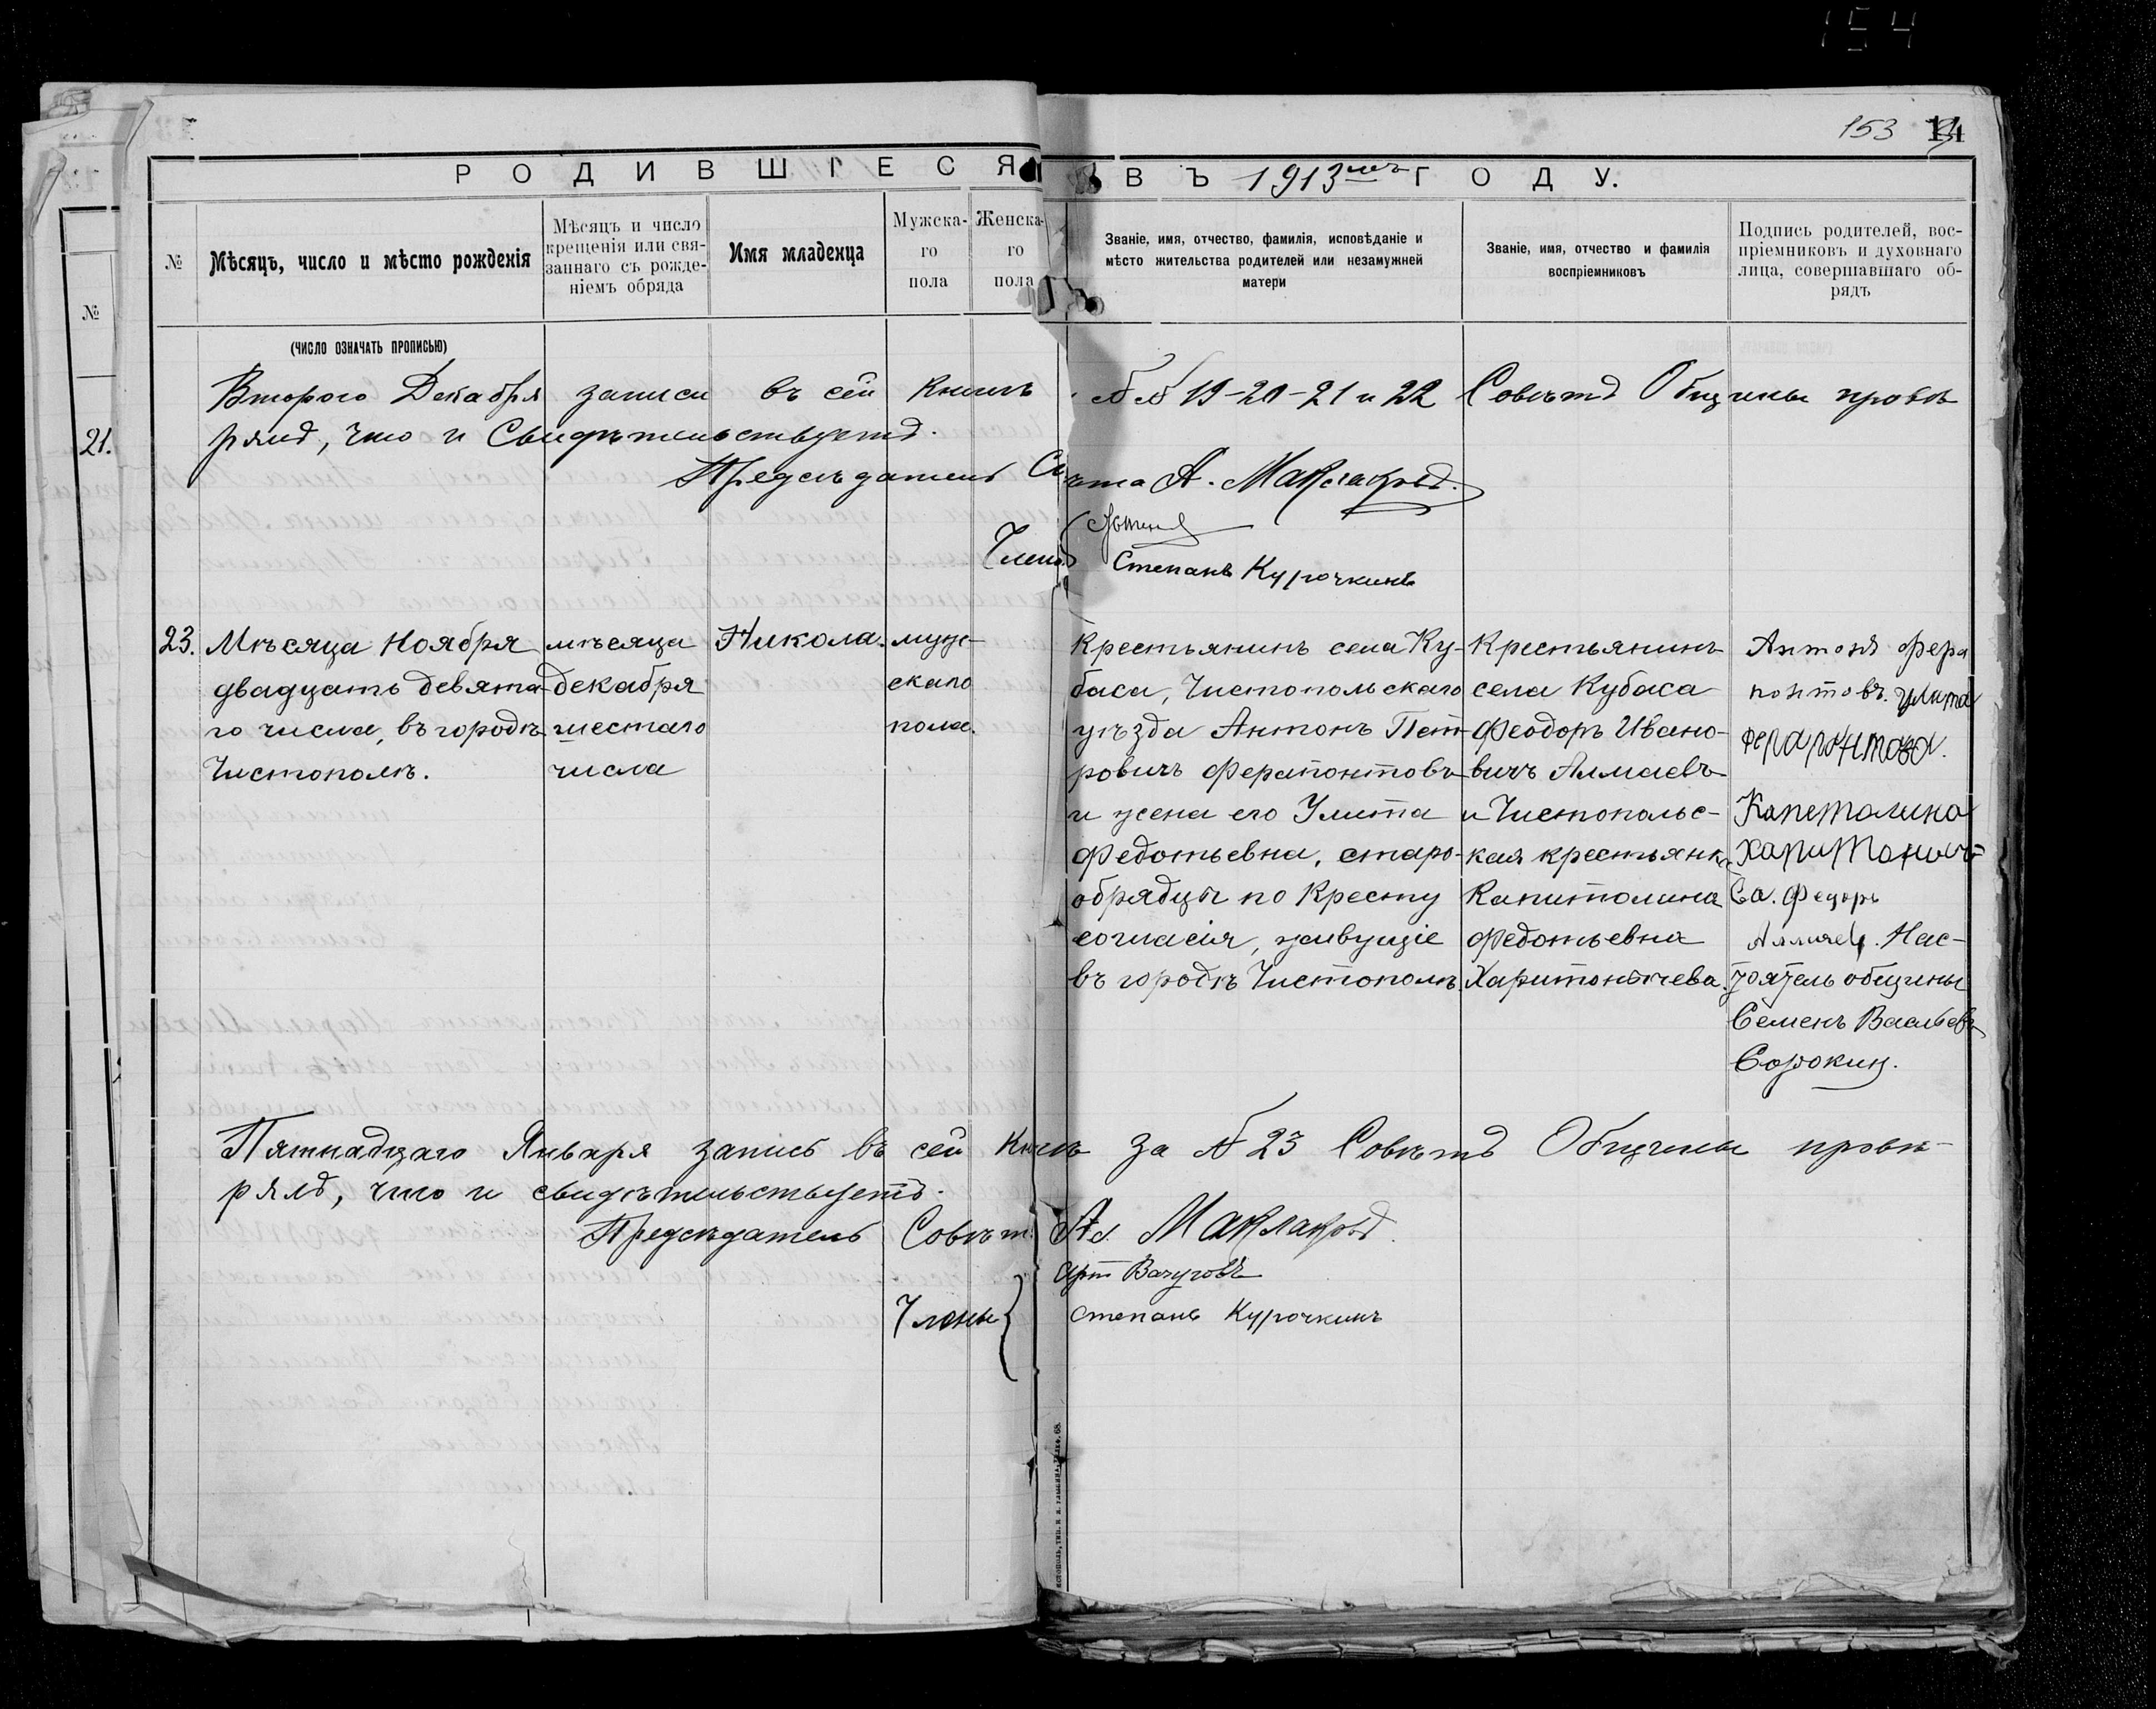 154
153 14
РОДИВШIЕСЯ ВЪ 1913мъ ГОДУ.
№
Мѣсяцъ, число и мѣсто рожденiя
Мѣсяцъ и число
крещенiя или свя-
заннаго съ рожде-
нiемъ обряда
Имя младенца
Мужска-
го
пола
Женска-
го
пола
Званiе, имя, отчество, фамилiя, исповѣданiе и
мѣсто жительства родителей или незамужней
матери
Званiе, имя, отчество и фамилiя
воспрiемниковъ
Подпись родителей, вос-
прiемниковъ и духовнаго
лица, совершавшаго об-
рядъ
№
21.
(ЧИСЛО ОЗНАЧАТЬ ПРОПИСЬЮ)
Второго Декабря записи въ сей книгѣ №№ 19-20-21 и 22 Совѣтъ Общины провѣ
рялъ, что и Свидѣтельствуетъ.
Предсѣдатель А. Маклаковъ.
Члены
Степанъ Курочкинъ
23.
Мѣсяца Ноября
двадцать девята-
го числа, въ городѣ
Чистополѣ.
мѣсяца
декабря
шестаго
числа
Никола.
муж-
скаго
пола.
Крестьянинъ села Ку-
баса, Чистопольскаго
уѣзда Антонъ Пет-
ровичъ Ферапонтовъ
и жена его Улита
Федотьевна, старо-
обрядцы по Кресту
согласiя, живущiе
въ городѣ Чистополѣ.
Крестьянинъ
села Кубаса
Феодоръ Ивано-
вичъ Алмаевъ
и Чистопольс-
кая крестьянка
Капитолина
Федотьевна
Харитонычева.
Антонъ фера
понтовъ. улита
Ферапонтова.
Капеталина
Харитоныч-
ва. Федоръ
Алмаев. Нас-
тоятель общины
Семенъ Васильев
Сорокин.
Пятнадцаго Января запись въ сей Книгѣ за № 23 Совѣтъ Общины провѣ-
рялъ, что и свидѣтельствуетъ.
Предсѣдатель Совѣт. Ал. Маклаковъ.
Члены
Степанъ Курочкинъ